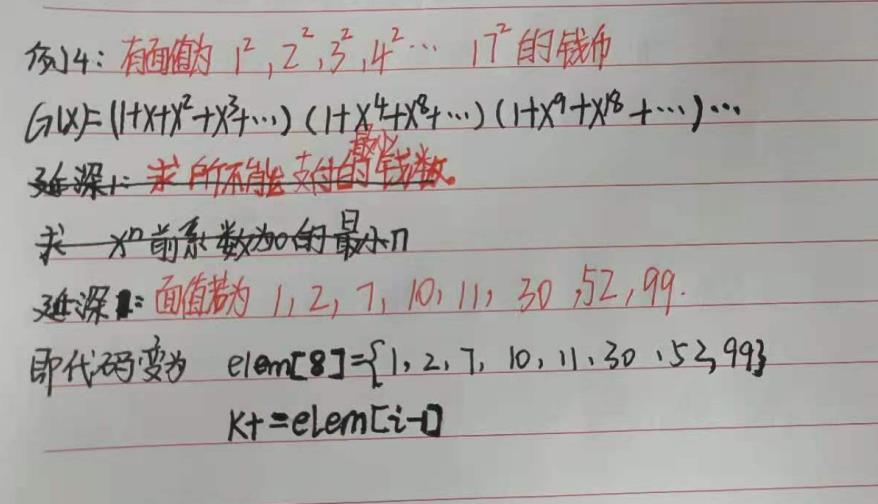 例4：有面值为 1²,2²,3²,4²… 17²的钱币
G(x)=(1+x+x²+x³+…)(1+x⁴+x⁸+…)(1+x⁹+x¹⁸+…)…
延深1：求所不能支付的最少钱数。
求 xⁿ前系数为0的最小n
延深1：面值若为 1, 2, 7, 10, 11, 30, 52, 99.
即代码变为 elem[8]={1, 2, 7, 10, 11, 30, 52, 99}
k+=elem[i-1]